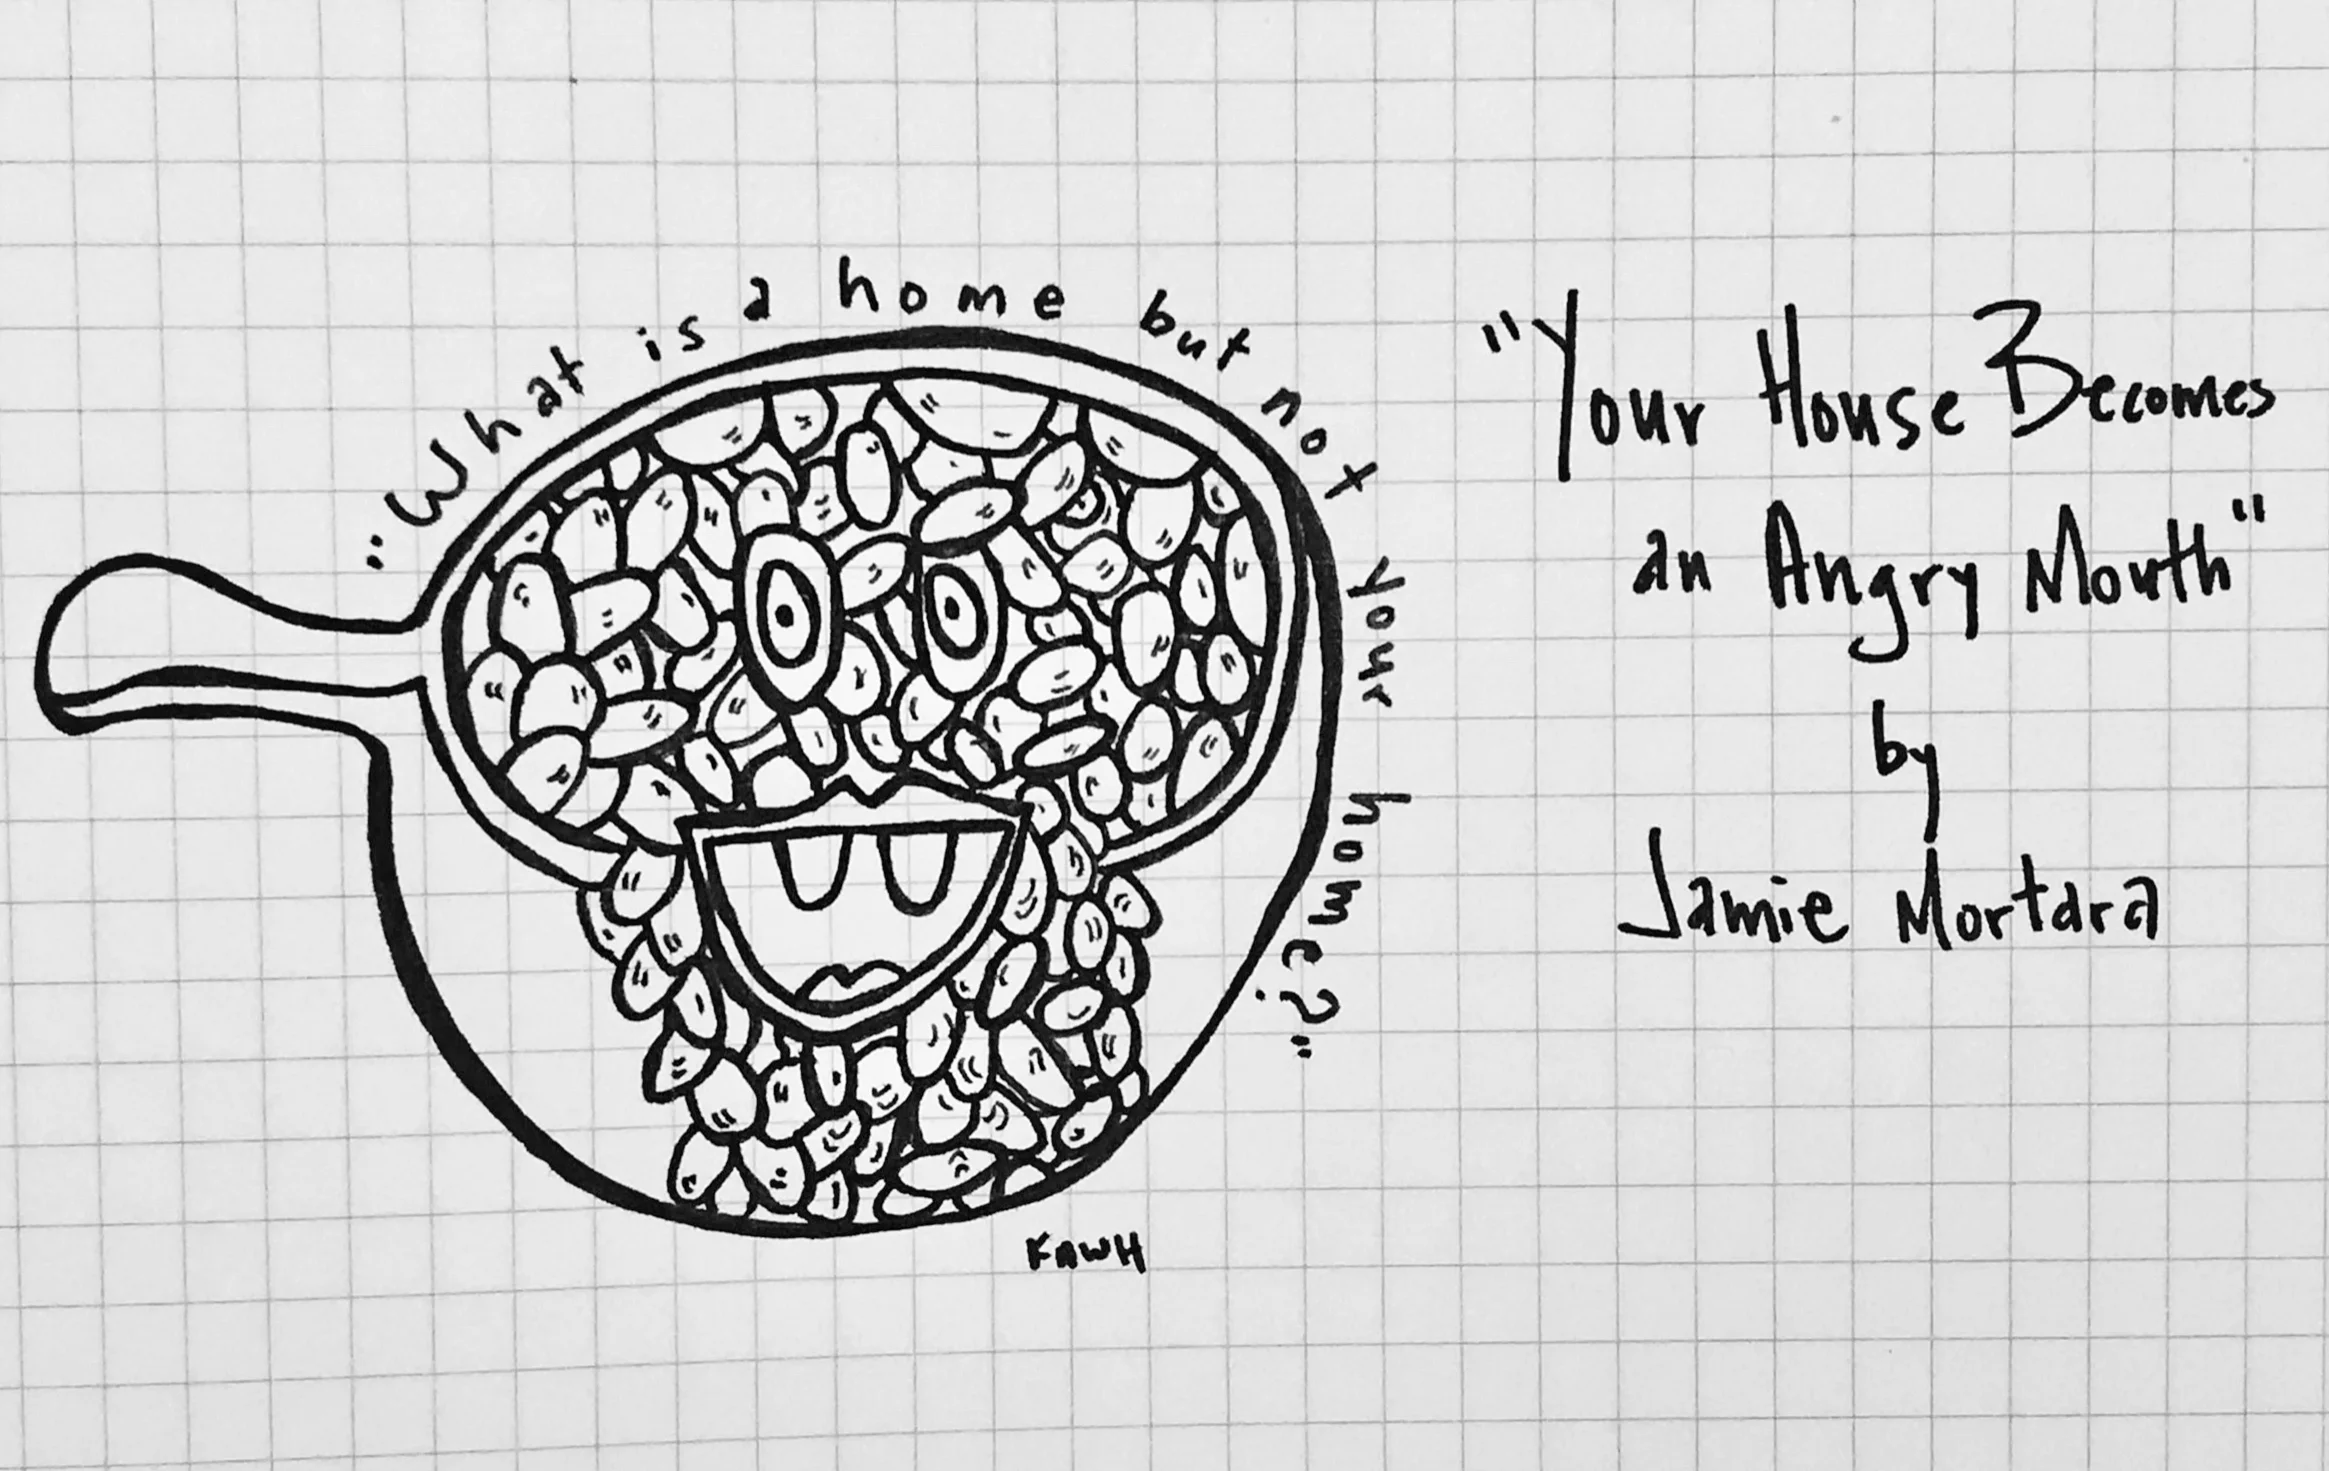 "What is a home but not your home?"
"Your House Becomes
an Angry Mouth"
by
Jamie Mortara
KAWH